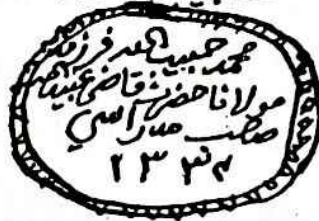 محمد حبیب اللہ فرزند
مولانا حضرت قاضی عبید اللہ
صاحب مدراسی
۱۳۳۸